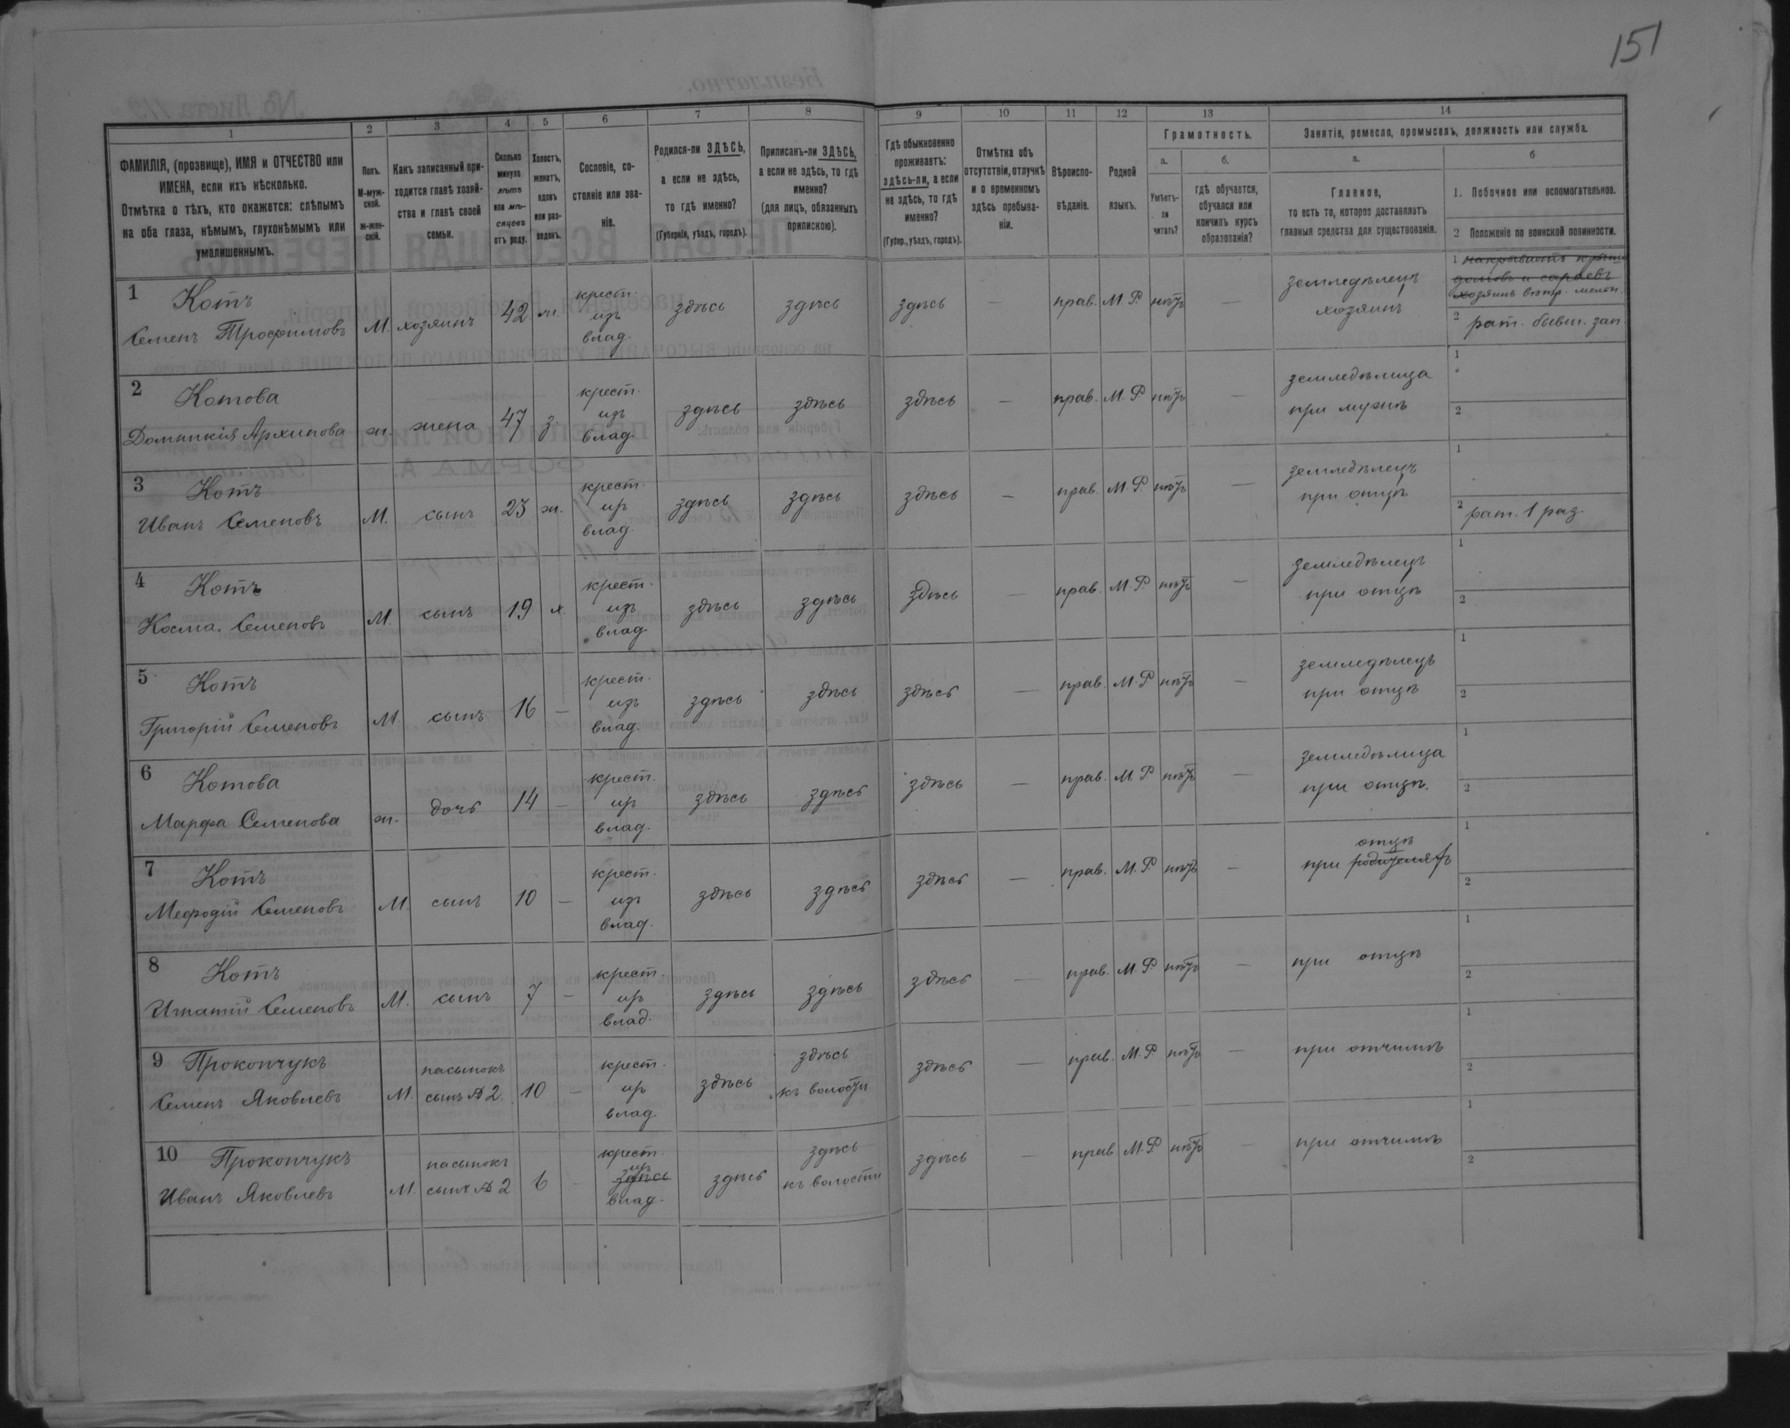 151
1
2
3
4
5
6
7
8
9
10
11
12
13
14
ФАМИЛІЯ, (прозвище), ИМЯ и ОТЧЕСТВО или ИМЕНА, если ихъ нѣсколько.
Отмѣтка о тѣхъ, кто окажется: слѣпымъ на оба глаза, нѣмымъ, глухонѣмымъ или умалишеннымъ.
Полъ. М-мужской. Ж-женскій.
Какъ записанный приходится главѣ хозяйства и главѣ своей семьи.
Сколько минуло лѣтъ или мѣсяцевъ отъ роду.
Холостъ, женатъ, вдовъ или разведенъ.
Сословіе, состояніе или званіе.
Родился-ли ЗДѢСЬ, а если не здѣсь, то гдѣ именно? (Губернія, уѣздъ, городъ).
Приписанъ-ли ЗДѢСЬ, а если не здѣсь, то гдѣ именно? (для лицъ, обязанныхъ припискою).
Гдѣ обыкновенно проживаетъ: здѣсь-ли, а если не здѣсь, то гдѣ именно? (Губер., уѣздъ, городъ).
Отмѣтка объ отсутствіи, отлучкѣ и о временномъ здѣсь пребываніи.
Вѣроисповѣданіе.
Родной языкъ.
Грамотность.
а. Умѣетъ-ли читать?
б. гдѣ обучается, обучался или кончилъ курсъ образованія?
Занятіе, ремесло, промыселъ, должность или служба.
а. Главное, то есть то, которое доставляетъ главныя средства для существованія.
б
1. Побочное или вспомогательное.
2 Положеніе по воинской повинности.
1 Котъ
Семенъ Трофимовъ М. хозяинъ 42 ж. крест. изъ влад. здѣсь здѣсь здѣсь — прав. М.Р. нѣтъ — земледѣлецъ хозяинъ
1 накрываетъ крыши домовъ и сараевъ
хозяинъ вѣтр. мельн.
2 рат. бывш. зап.
2 Котова
Домникія Архипова ж. жена 47 з. крест. изъ влад. здѣсь здѣсь здѣсь — прав. М.Р. нѣтъ — земледѣлица при мужѣ 1 2
3 Котъ
Иванъ Семеновъ М. сынъ 23 ж. крест. изъ влад. здѣсь здѣсь здѣсь — прав. М.Р. нѣтъ — земледѣлецъ при отцѣ 1
2 рат. 1 раз.
4 Котъ
Косма Семеновъ М. сынъ 19 х. крест. изъ влад. здѣсь здѣсь здѣсь — прав. М.Р. нѣтъ — земледѣлецъ при отцѣ 1 2
5 Котъ
Григорій Семеновъ М. сынъ 16 — крест. изъ влад. здѣсь здѣсь здѣсь — прав. М.Р. нѣтъ — земледѣлецъ при отцѣ 1 2
6 Котова
Марфа Семенова ж. дочь 14 — крест. изъ влад. здѣсь здѣсь здѣсь — прав. М.Р. нѣтъ — земледѣлица при отцѣ. 1 2
7 Котъ
Мефодій Семеновъ М. сынъ 10 — крест. изъ влад. здѣсь здѣсь здѣсь — прав. М.Р. нѣтъ — при родителяхъ отцѣ 1 2
8 Котъ
Игнатій Семеновъ М. сынъ 7 — крест. изъ влад. здѣсь здѣсь здѣсь — прав. М.Р. нѣтъ — при отцѣ 1 2
9 Прокопчукъ
Семенъ Яковлевъ М. пасынокъ сынъ № 2. 10 — крест. изъ влад. здѣсь здѣсь къ волости здѣсь — прав. М.Р. нѣтъ — при отчимѣ 1 2
10 Прокопчукъ
Иванъ Яковлевъ М. пасынокъ сынъ № 2 6 — крест. изъ здѣсь влад. здѣсь здѣсь къ волости здѣсь — прав М.Р нѣтъ — при отчимѣ 1 2